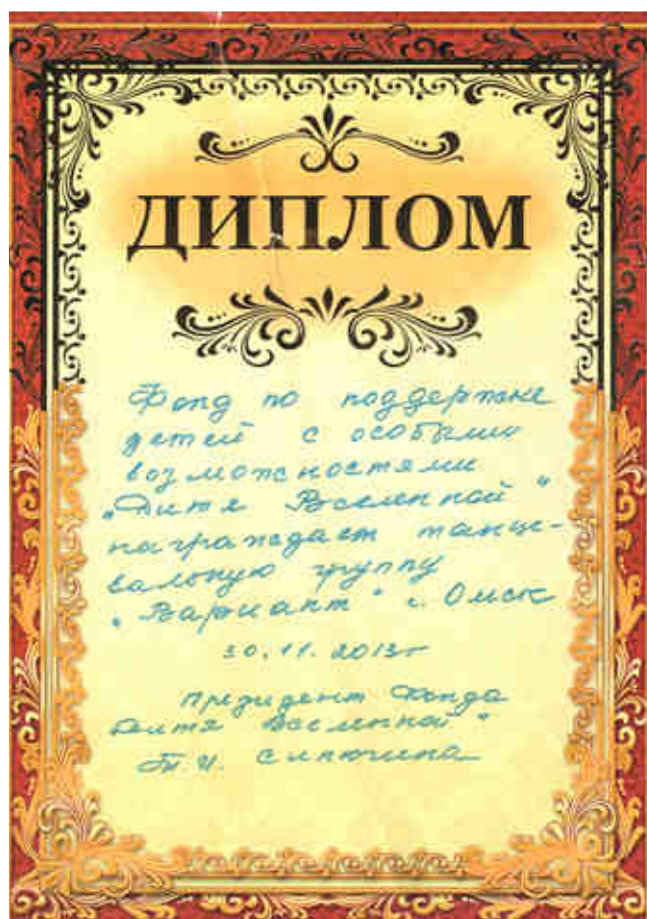 ДИПЛОМ
Фонд по поддержке
детей с особыми
возможностями
"Дитя Вселенной"
награждает танце-
вальную группу
"Вариант" г. Омск
30.11.2013г
Президент Фонда
Дитя Вселенной"
Т.И.